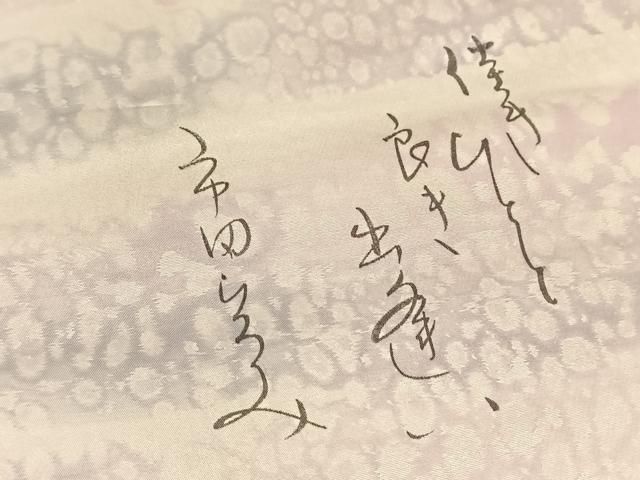 佳きひと
良き出逢い
市田ひろみ